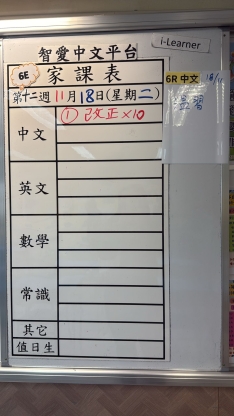 i-Learner
智愛中文平台
6E 家課表
第十二週11月18日(星期二)
中文 ① 改正×10
英文
數學
常識
其它
值日生
6R 中文